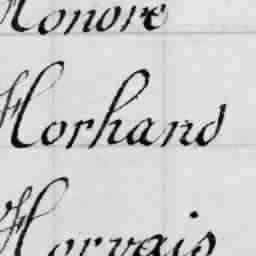 Honore
Horhand
Horvais